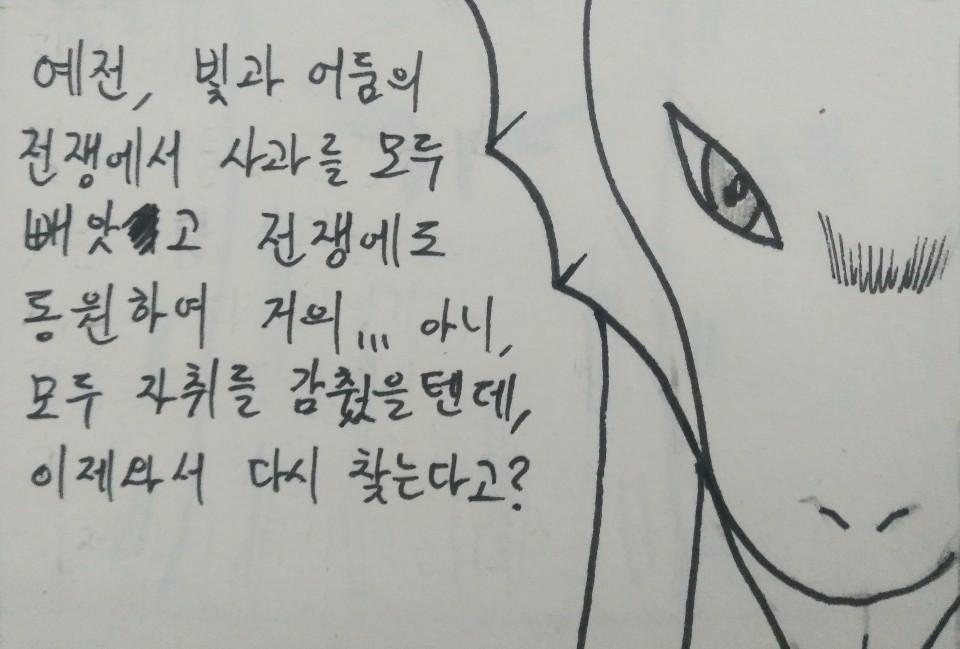 예전, 빛과 어둠의
전쟁에서 사과를 모두
빼앗고 전쟁에도
동원하여 거의... 아니,
모두 자취를 감췄을텐데,
이제와서 다시 찾는다고?